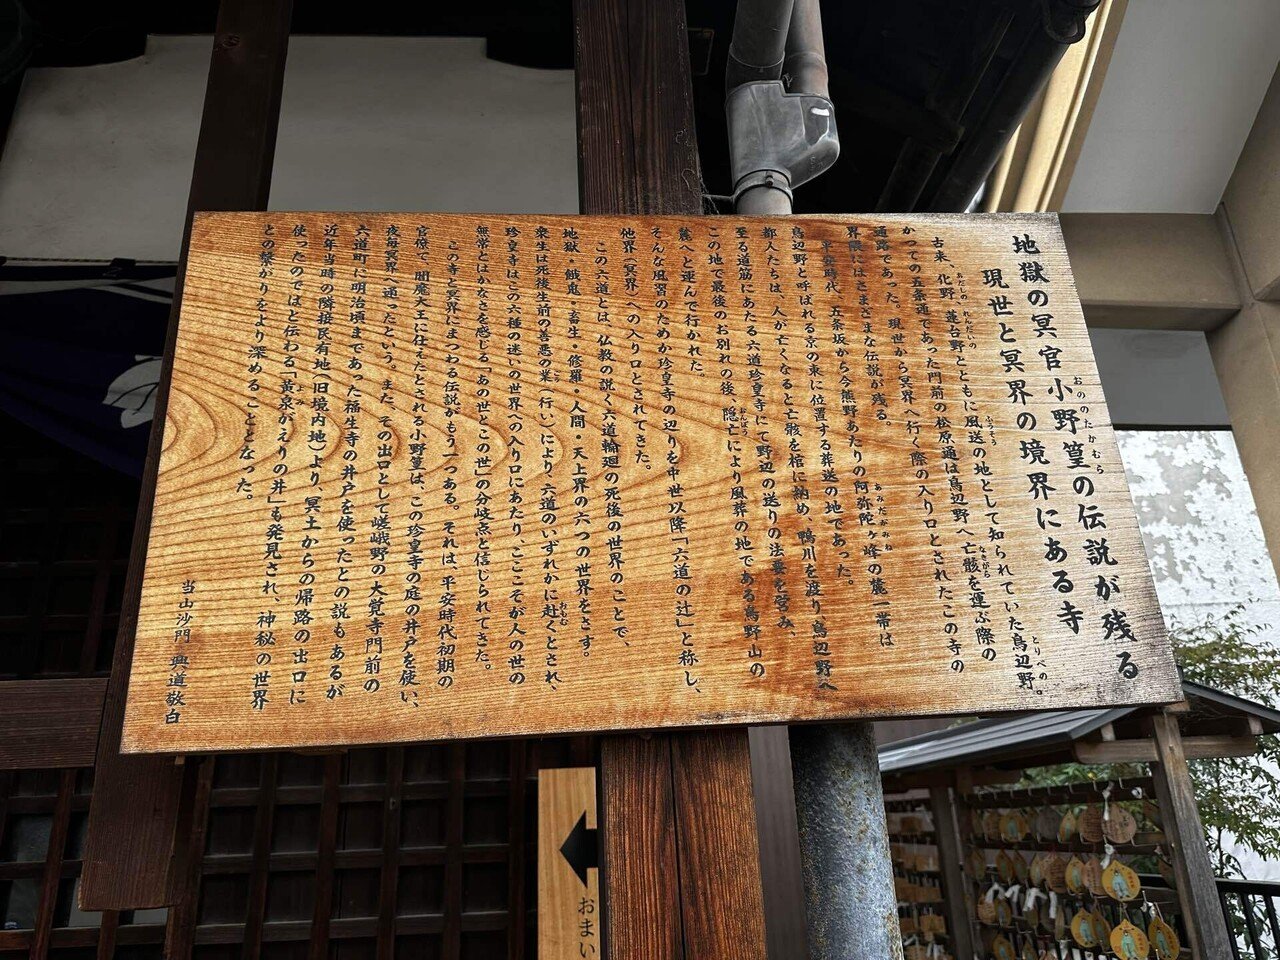 地獄の冥官小野篁の伝説が残る
現世と冥界の境界にある寺
古来、化野、蓮台野とともに風送の地として知られていた鳥辺野。
かつての五条通であった門前の松原通は鳥辺野へ亡骸を運ぶ際の
通路であった。現世から冥界へ行く際の入り口とされたこの寺の
界隈にはさまざまな伝説が残る。
平安時代、五条坂から今熊野あたりの阿弥陀ヶ峰の麓一帯は
鳥辺野と呼ばれる京の東に位置する葬送の地であった。
都人たちは、人が亡くなると亡骸を棺に納め、鴨川を渡り、鳥辺野へ
至る道筋にあたる六道珍皇寺にて野辺の送りの法要を営み、
この地で最後のお別れの後、隠亡により風葬の地である鳥野山の
麓へと運んで行かれた
そんな風習のためか珍皇寺の辺りを中世以降「六道の辻」と称し、
他界（冥界）への入り口とされてきた。
この六道とは、仏教の説く六道輪廻の死後の世界のことで、
地獄・餓鬼・畜生・修羅・人間・天上界の六つの世界をさす。
衆生は死後生前の善悪の業（行い）により六道のいずれかに赴くとされ、
珍皇寺はこの六種の迷いの世界への入り口にあたり、ここそが人の世の
無常とはかなさを感じる「あの世とこの世」の分岐点と信じられてきた。
この寺と冥界にまつわる伝説がもう一つある。それは、平安時代初期の
官僚で、閻魔大王に仕えたとされる小野篁は、この珍皇寺の庭の井戸を使い、
夜毎冥界へ通ったという。また、その出口として嵯峨野の大覚寺門前の
六道町に明治頃まであった福生寺の井戸を使ったとの説もあるが
近年当時の隣接民有地（旧境内地）より、冥土からの帰路の出口に
使ったのではと伝わる「黄泉がえりの井」も発見され、神秘の世界
との繋がりをより深めることとなった。
当山沙門 興道敬白
おまい